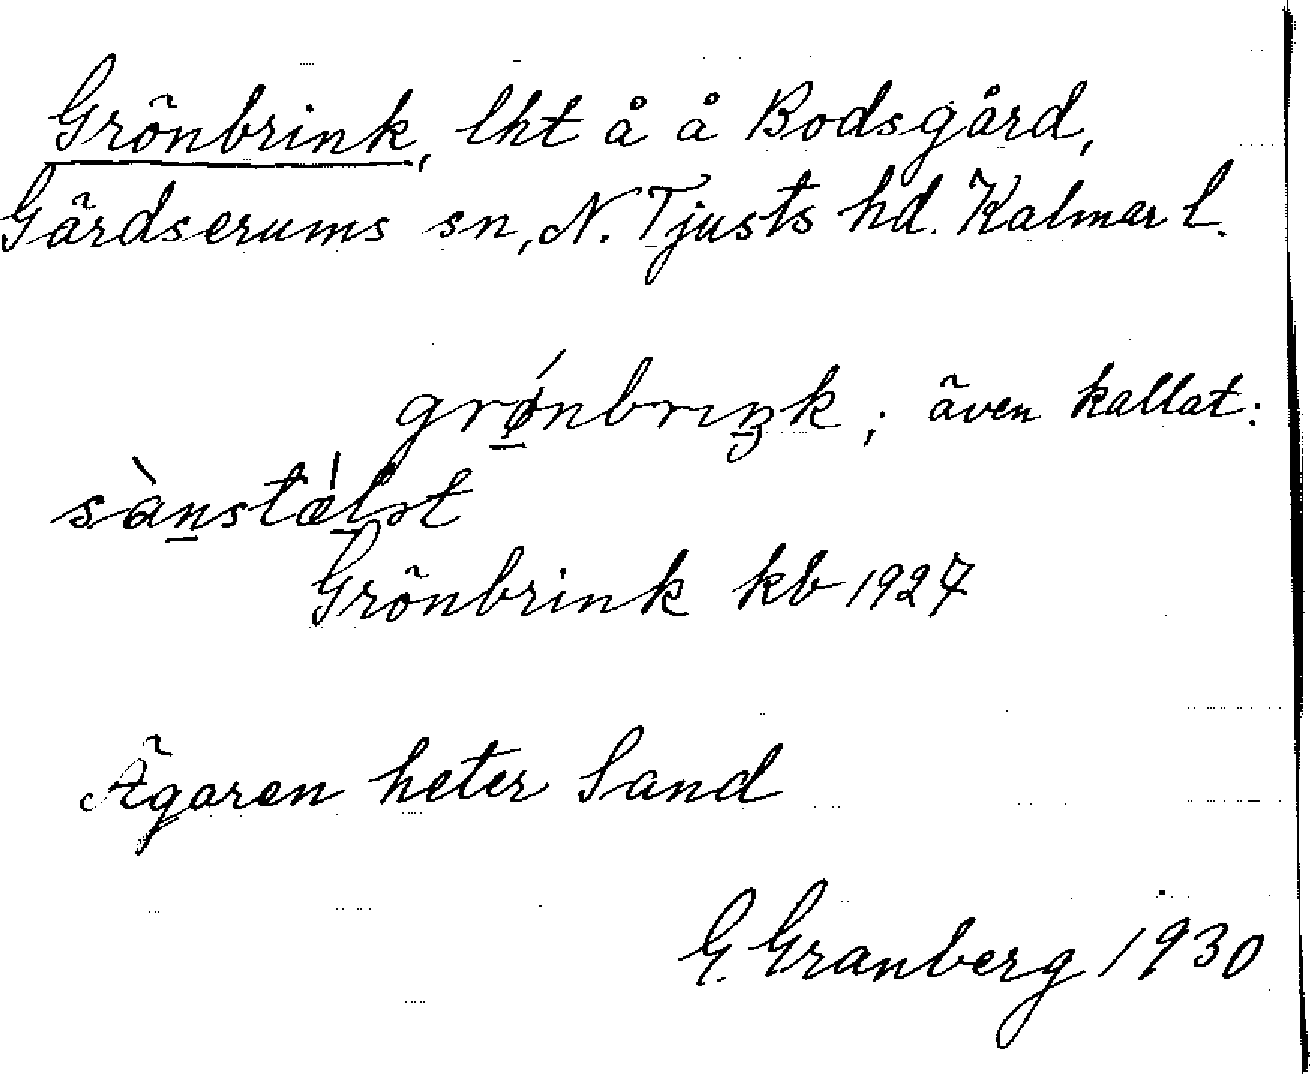 Grönbrink, lht å å Bodsgård,
Gärdserums sn, N. Tjusts hd. Kalmar l.
grǿnbrıŋk; även kallat:
sànstǽlət
Grönbrink kb 1927
Ägaren heter Sand
G. Granberg 1930